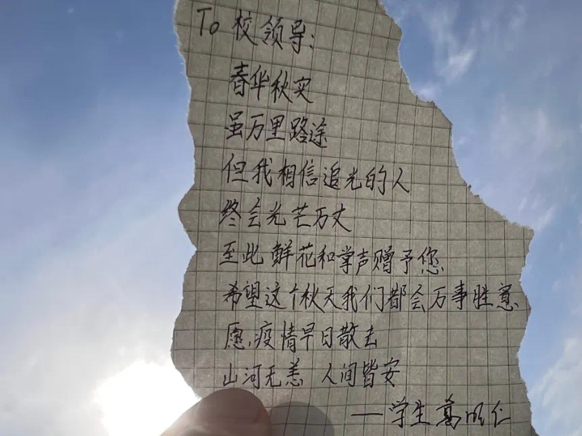 To 校领导:
春华秋实
虽万里路途
但我相信追光的人
终会光芒万丈
至此 鲜花和掌声赠予您
希望这个秋天我们都会万事胜意
愿,疫情早日散去
山河无恙 人间皆安
——学生 葛